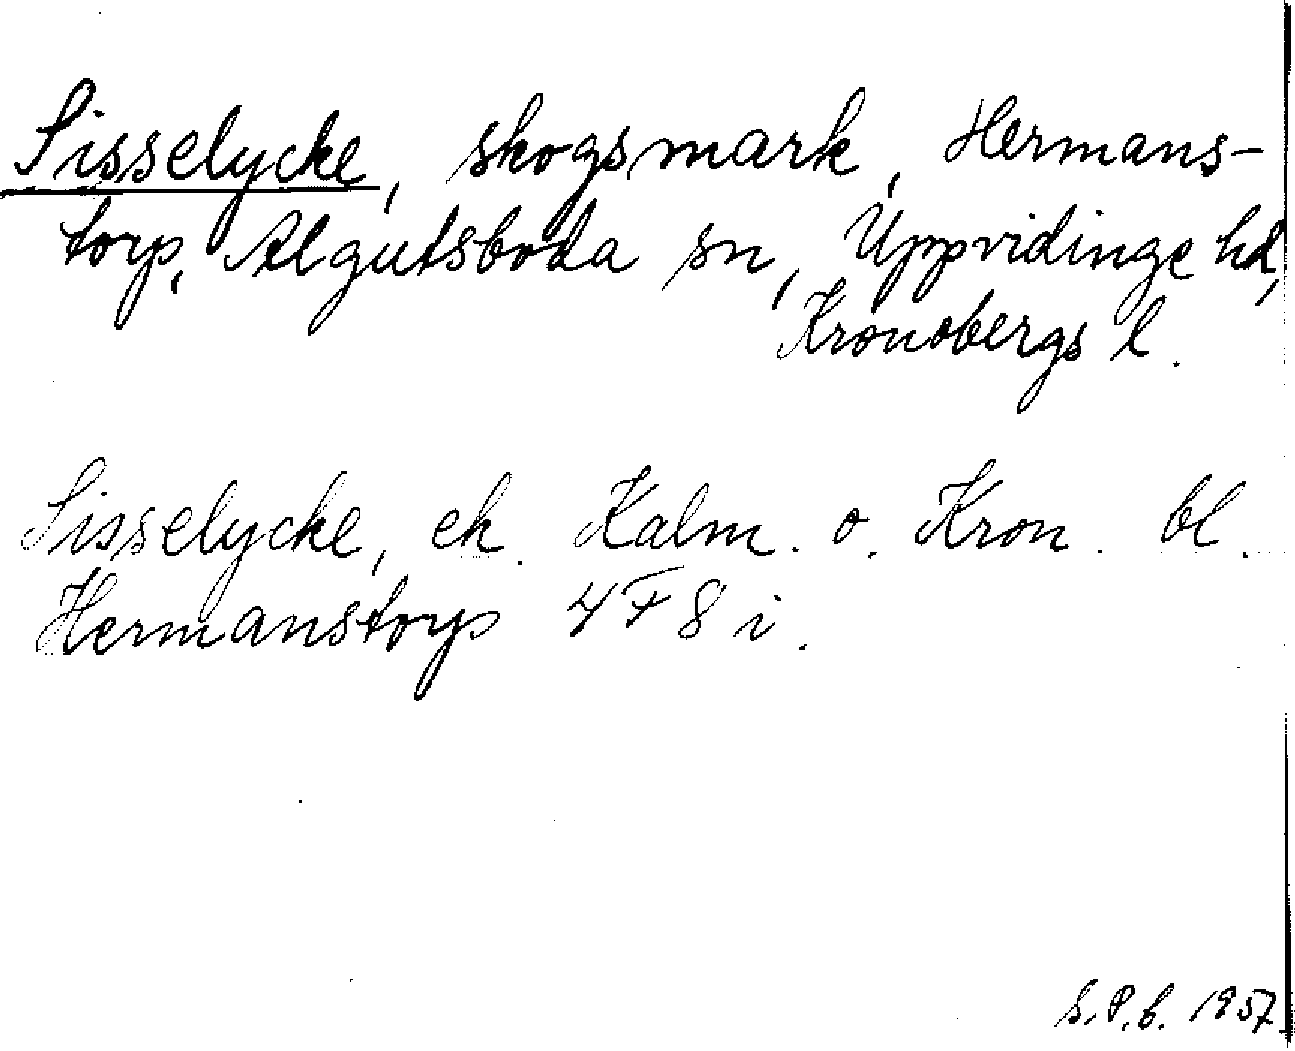 Sisselycke, skogsmark, Hermans-
torp, Algutsboda sn, Uppvidinge hd,
Kronobergs l.
Sisselycke, ek. Kalm. o. Kron. bl.
Hermanstorp 4F8i.
S.P.b. 1957